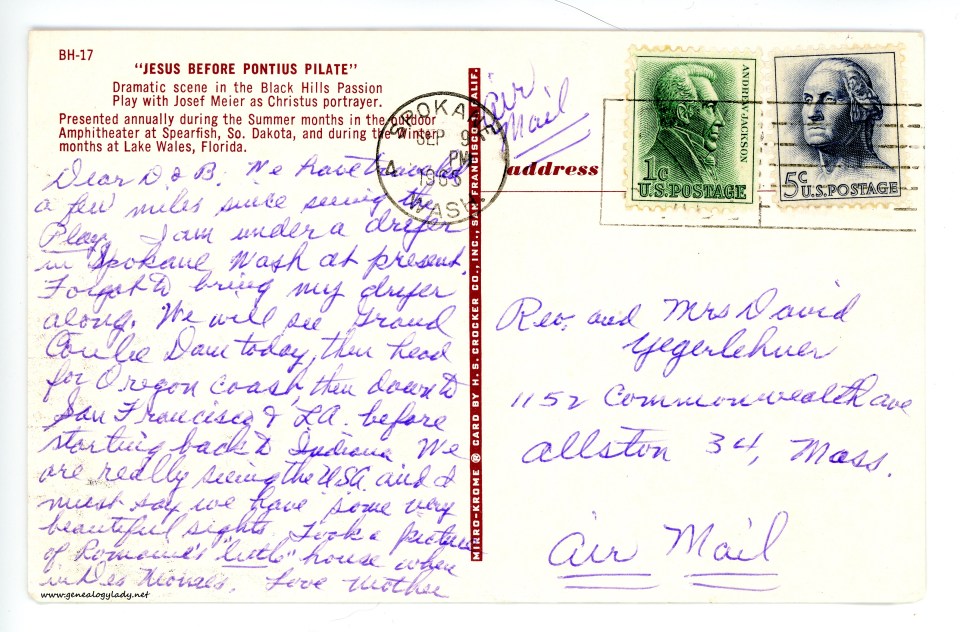 BH-17
"JESUS BEFORE PONTIUS PILATE"
Dramatic scene in the Black Hills Passion
Play with Josef Meier as Christus portrayer.
Presented annually during the Summer months in the outdoor
Amphitheater at Spearfish, So. Dakota, and during the Winter
months at Lake Wales, Florida.
Dear D & B. We have traveled
a few miles since seeing the
Play. I am under a dryer
in Spokane Wash at present.
Forgot to bring my dryer
along. We will see Grand
Coulee Dam today, then head
for Oregon coast, then down to
San Francisco & L.A. before
starting back to Indiana. We
are really seeing the USA and I
must say we have some very
beautiful sights. Took a picture
of Romaine's "little" house when
in Des Moines. Love Mother
www.genealogylady.net
MIRRO-KROME ® CARD BY H. S. CROCKER CO., INC., SAN FRANCISCO 1, CALIF.
SPOKANE
SEP 9
PM
WASH
Air
Mail
address
ANDREW JACKSON
1c
U.S. POSTAGE
5c
U.S. POSTAGE
Rev. and Mrs David
Yegerlehner
1152 Commonwealth ave
Allston 34, Mass.
Air Mail